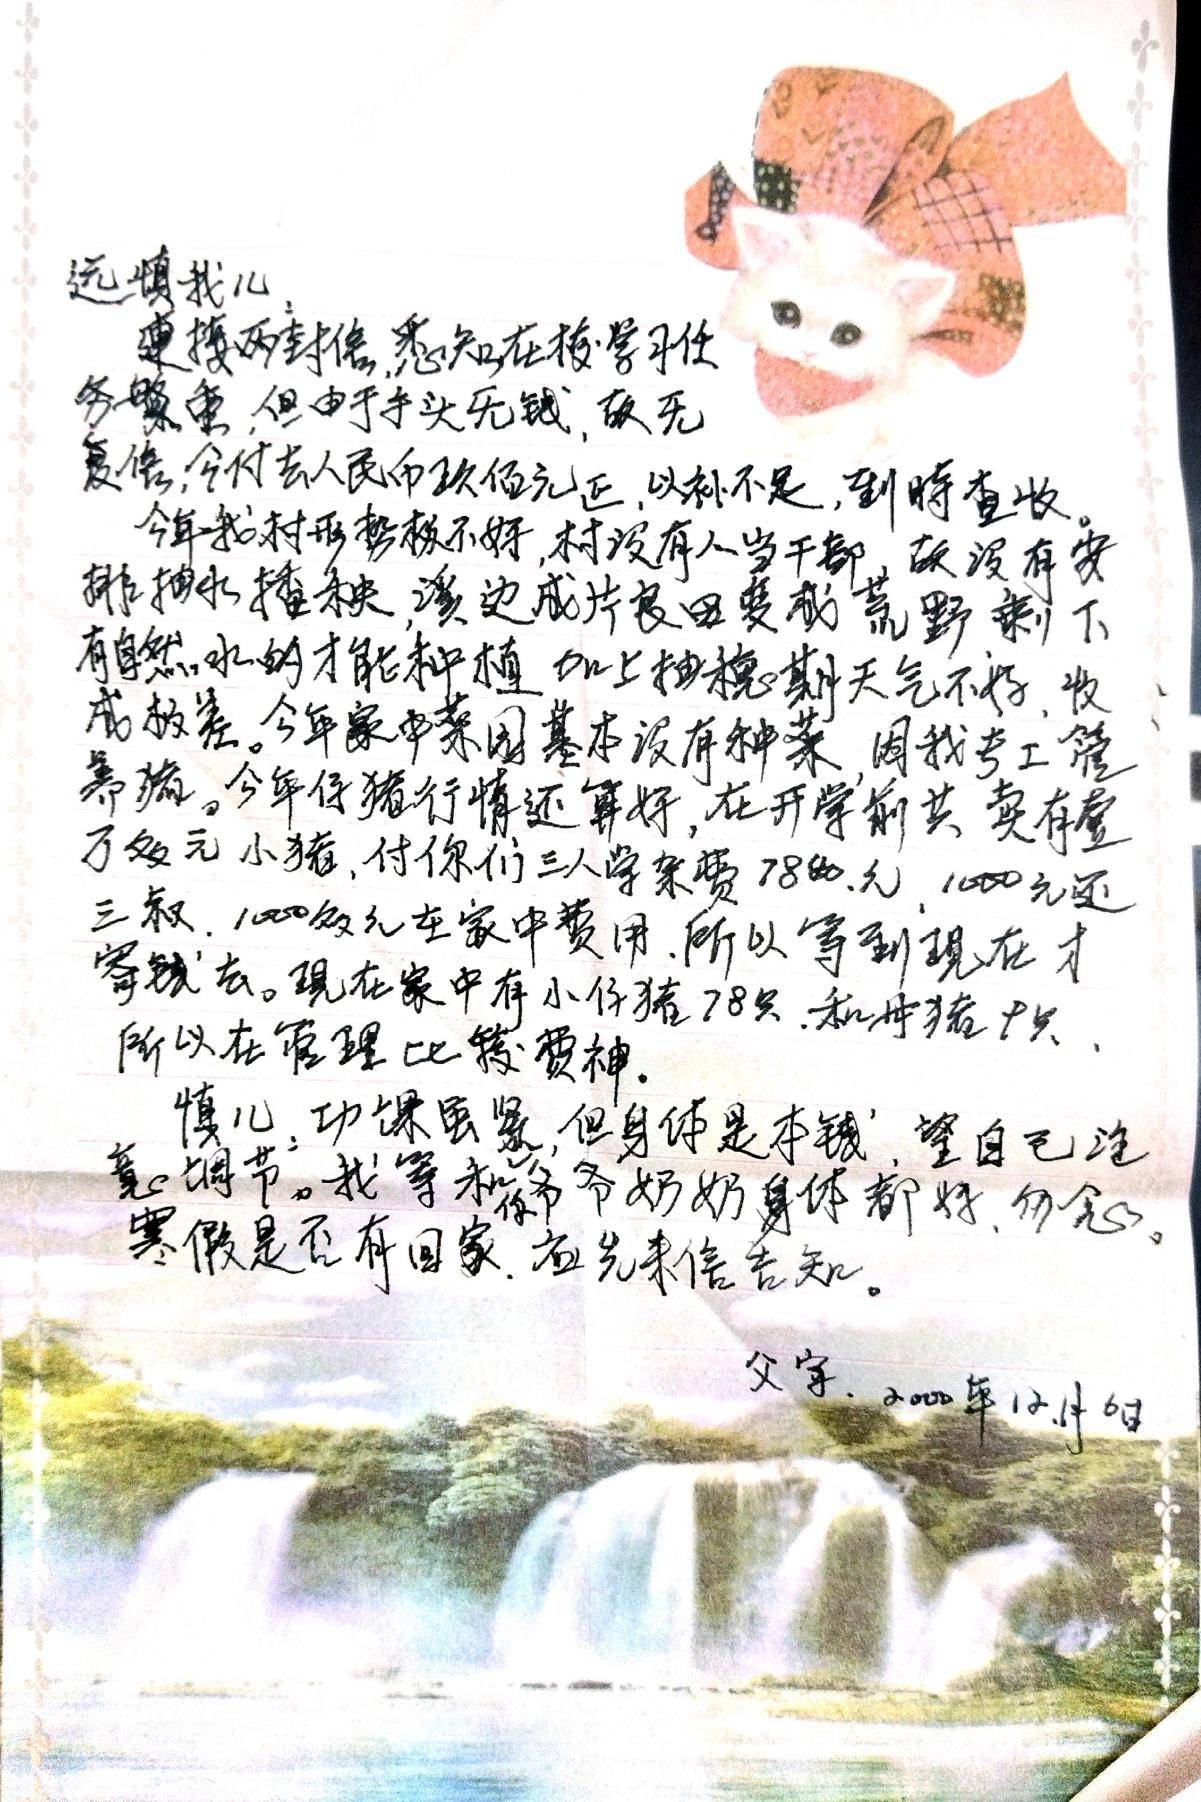 远慎我儿：
連接两封信，悉知在校学习任
务繁重，但由于手头无钱，故无
复信，今付去人民币玖佰元正，以补不足，到時查收。
今年我村形势极不好，村没有人当干部，故没有安
排抽水播秧，溪边成片良田变成荒野剩下
有自然水的才能种植 加上抽穗期天气不好，收
成极差。今年家中菜园基本没有种菜，因我专工管
养猪。今年仔猪行情还算好，在开学前共卖有壹
万多元小猪，付你们三人学杂费7800.元，1000元还
三叔，1000多元在家中费用，所以等到現在才
寄钱去。現在家中有小仔猪78只，和母猪十只，
所以在管理比较费神。
慎儿：功课虽紧，但身体是本钱，望自己注
意调节。我等和你爷爷奶奶身体都好，勿念。
寒假是否有回家，应先来信告知。
父字. 2000年12月6日